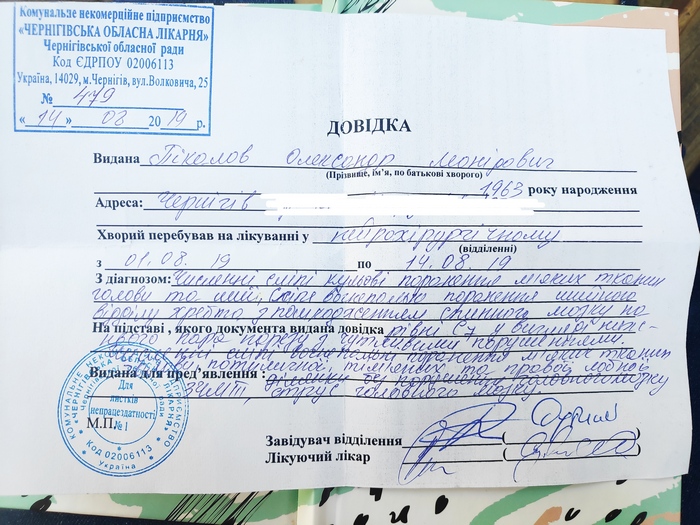 Комунальне некомерційне підприємство
«ЧЕРНІГІВСЬКА ОБЛАСНА ЛІКАРНЯ»
Чернігівської обласної ради
Код ЄДРПОУ 02006113
Україна, 14029, м.Чернігів, вул.Волковича, 25
№ 479
«14» 08 2019 р.
ДОВІДКА
Видана Піколов Олександр
(Прізвище, ім'я, по батькові хворого)
1963 року народження
Адреса: Чернігів
Хворий перебував на лікуванні у нейрохірургічному
(відділенні)
з 01.08.19 по 14.08.19
З діагнозом: Численні сліпі кульові поранення м'яких тканин
голови та шиї. Сліпе поранення шийного
відділу хребта з спинного мозку на
На підставі, якого документа видана довідка рівні C7 у вигляді
парапарезу з чутливими порушеннями.
сліпі поранення м'яких тканин
Видана для пред'явлення : головного мозку
ЗЧМТ, струс головного мозку.
КОМУНАЛЬНЕ НЕКОМЕРЦІЙНЕ ПІДПРИЄМСТВО
«ЧЕРНІГІВСЬКА ОБЛАСНА ЛІКАРНЯ»
Чернігівської обласної ради
Для
листків
непрацездатності
№ 1
Код 02006113
Україна
М.П.
Завідувач відділення
Лікуючий лікар